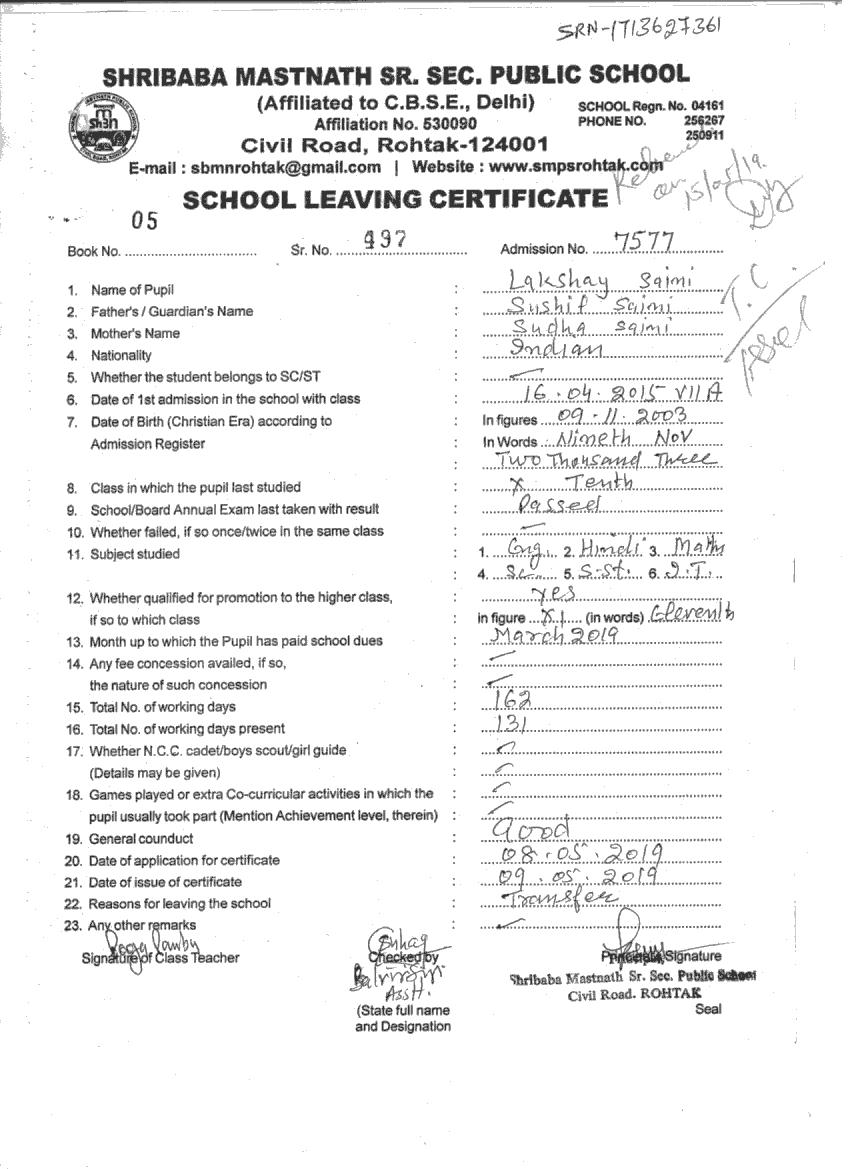 SRN-1713627361
SHRIBABA MASTNATH SR. SEC. PUBLIC SCHOOL
(Affiliated to C.B.S.E., Delhi)
SCHOOL Regn. No. 04161
Affiliation No. 530090
PHONE NO. 256267
250911
Civil Road, Rohtak-124001
E-mail : sbmnrohtak@gmail.com | Website : www.smpsrohtak.com
on 15/05/19.
SCHOOL LEAVING CERTIFICATE
Book No. 05 Sr. No. 497 Admission No. 7577
T.C.
1. Name of Pupil : Lakshay Saini
2. Father's / Guardian's Name : Sushil Saini
3. Mother's Name : Sudha Saini
4. Nationality : Indian
5. Whether the student belongs to SC/ST :
6. Date of 1st admission in the school with class : 16.04.2015 VII A
7. Date of Birth (Christian Era) according to : In figures 09-11-2003
Admission Register In Words Nineth Nov
: Two Thousand Three
8. Class in which the pupil last studied : X Tenth
9. School/Board Annual Exam last taken with result : Passed
10. Whether failed, if so once/twice in the same class :
11. Subject studied : 1. Eng. 2. Hindi 3. Maths
: 4. Sc. 5. S.St. 6. I.T.
12. Whether qualified for promotion to the higher class, : yes
if so to which class in figure XI (in words) Eleventh
13. Month up to which the Pupil has paid school dues : March 2019
14. Any fee concession availed, if so, :
the nature of such concession :
15. Total No. of working days : 162
16. Total No. of working days present : 131
17. Whether N.C.C. cadet/boys scout/girl guide :
(Details may be given) :
18. Games played or extra Co-curricular activities in which the :
pupil usually took part (Mention Achievement level, therein) :
19. General counduct : Good
20. Date of application for certificate : 08.05.2019
21. Date of issue of certificate : 09.05.2019
22. Reasons for leaving the school : Transfer
23. Any other remarks :
Signature of Class Teacher Checked by Signature
Asstt.
Shribaba Mastnath Sr. Sec. Public School
Civil Road. ROHTAK
(State full name Seal
and Designation